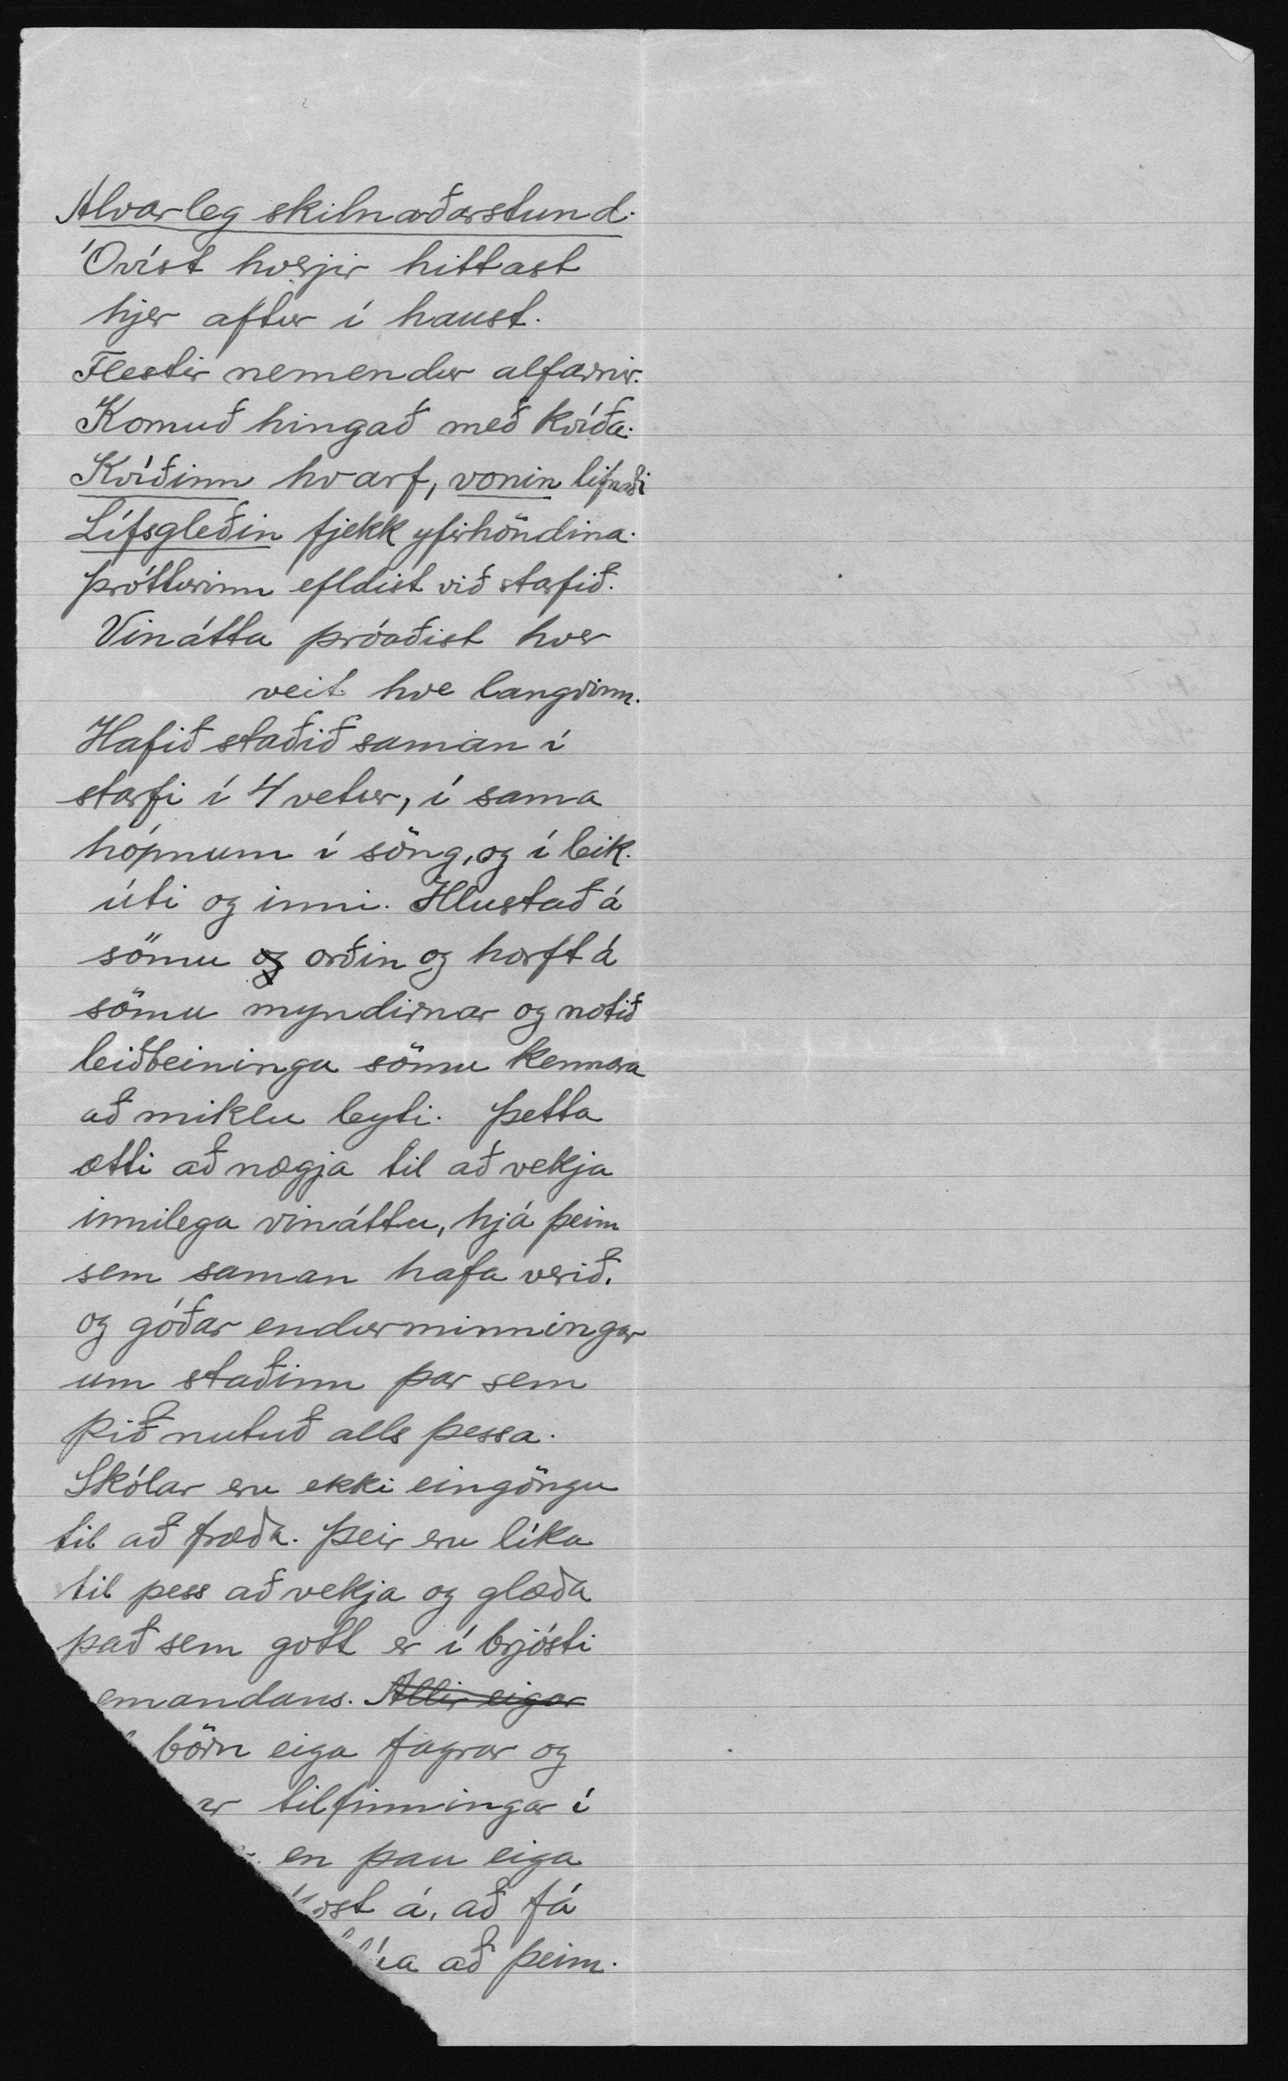 Alvarleg skilnaðarstund.
Óvíst hverjir hittast
hjer aftur í haust.
Flestir nemendur alfarnir.
Komuð hingað með kvíða.
Kvíðinn hvarf, vonin lifnaði
Lífsgleðin fjekk yfirhöndina.
Þrótturinn efldist við starfið.
Vinátta þróaðist hver
veit hve langvinn.
Hafið staðið saman í
starfi í 4 vetur, í sama
hópnum í söng, og í leik.
úti og inni. Hlustað á
sömu og orðin og horft á
sömu myndirnar og notið
leiðbeininga sömu kennara
að miklu leyti. Þetta
ætti að nægja til að vekja
innilega vináttu, hjá þeim
sem saman hafa verið.
og góðar endurminningar
um staðinn þar sem
þið nutuð alls þessa.
Skólar eru ekki eingöngu
til að fræða. Þeir eru líka
til þess að vekja og glæða
það sem gott er í brjósti
emandans. Allir eigar
börn eiga fagrar og
ar tilfinningar í
en þau eiga
ost á, að fá
að þeim.